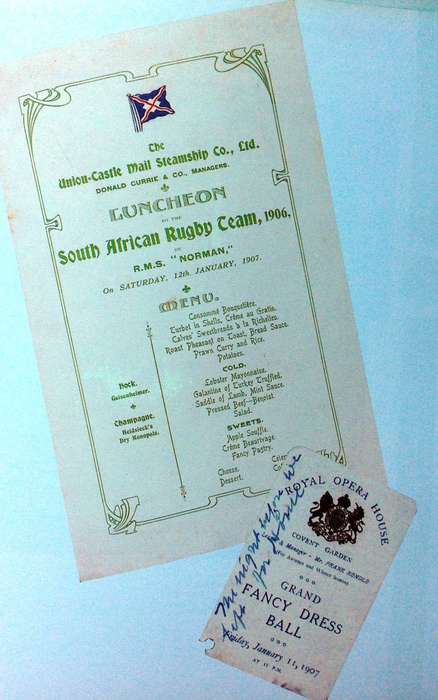 The
Union-Castle Mail Steamship Co., Ltd.
DONALD CURRIE & CO., MANAGERS.
LUNCHEON
TO THE
South African Rugby Team, 1906,
ON
R.M.S. "NORMAN,"
On SATURDAY, 12th. JANUARY, 1907.
MENU.
Consommé Bouquetière.
Turbot in Shells, Crême au Gratin.
Calves' Sweetbreads à la Richelieu.
Roast Pheasant on Toast, Bread Sauce.
Prawn Curry and Rice.
Potatoes.
COLD.
Lobster Mayonnaise.
Galantine of Turkey Truffled.
Saddle of Lamb, Mint Sauce.
Pressed Beef—Benoist.
Salad.
SWEETS.
Apple Souffle.
Crême Beaurivage.
Fancy Pastry.
Cheese.
Dessert.
Hock.
Geisenheimer.
Champagne.
Heidsieck's
Dry Monopole.
ROYAL OPERA HOUSE
COVENT GARDEN
& Manager - Mr. FRANK RENDLE
(For Autumn and Winter Season)
GRAND
FANCY DRESS
BALL
Friday, January 11, 1907
AT 11 P.M.
The night before we
left for home